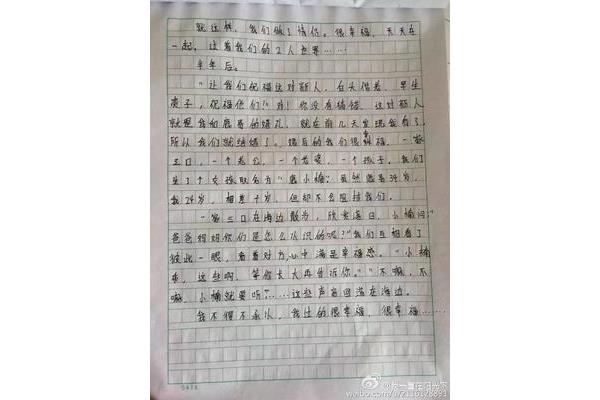 就这样，我们做了情侣。很幸福，天天在
一起，过着我们的2人世界……
半年后。
"让我们祝福这对丽人，白头偕老，早生
贵子，祝福他们！"对！你没有猜错，这对丽人
就是我和鹿哥的婚礼，就在前几天发现会有了，
所以我们就结婚了。婚后的我们很幸福，一家
三口，一个老公，一个老婆，一个孩子。我们
生了个女孩取名为"鹿小楠"虽然鹿哥34岁，
我24岁，相差十岁，但却不会阻挡我们。
一家三口在海边散步，欣赏落日，小楠问："
爸爸妈妈你们是怎么认识的呢？"我们互相看了
彼此一眼，看着对方，心中满是幸福感。"小楠
乖，这些啊，等你长大再告诉你。""不嘛，不
嘛，小楠就要听"……这些声音回荡在海边。
我不得不承认，我过的很幸福，很幸福……
weibo.com/u/7116128891